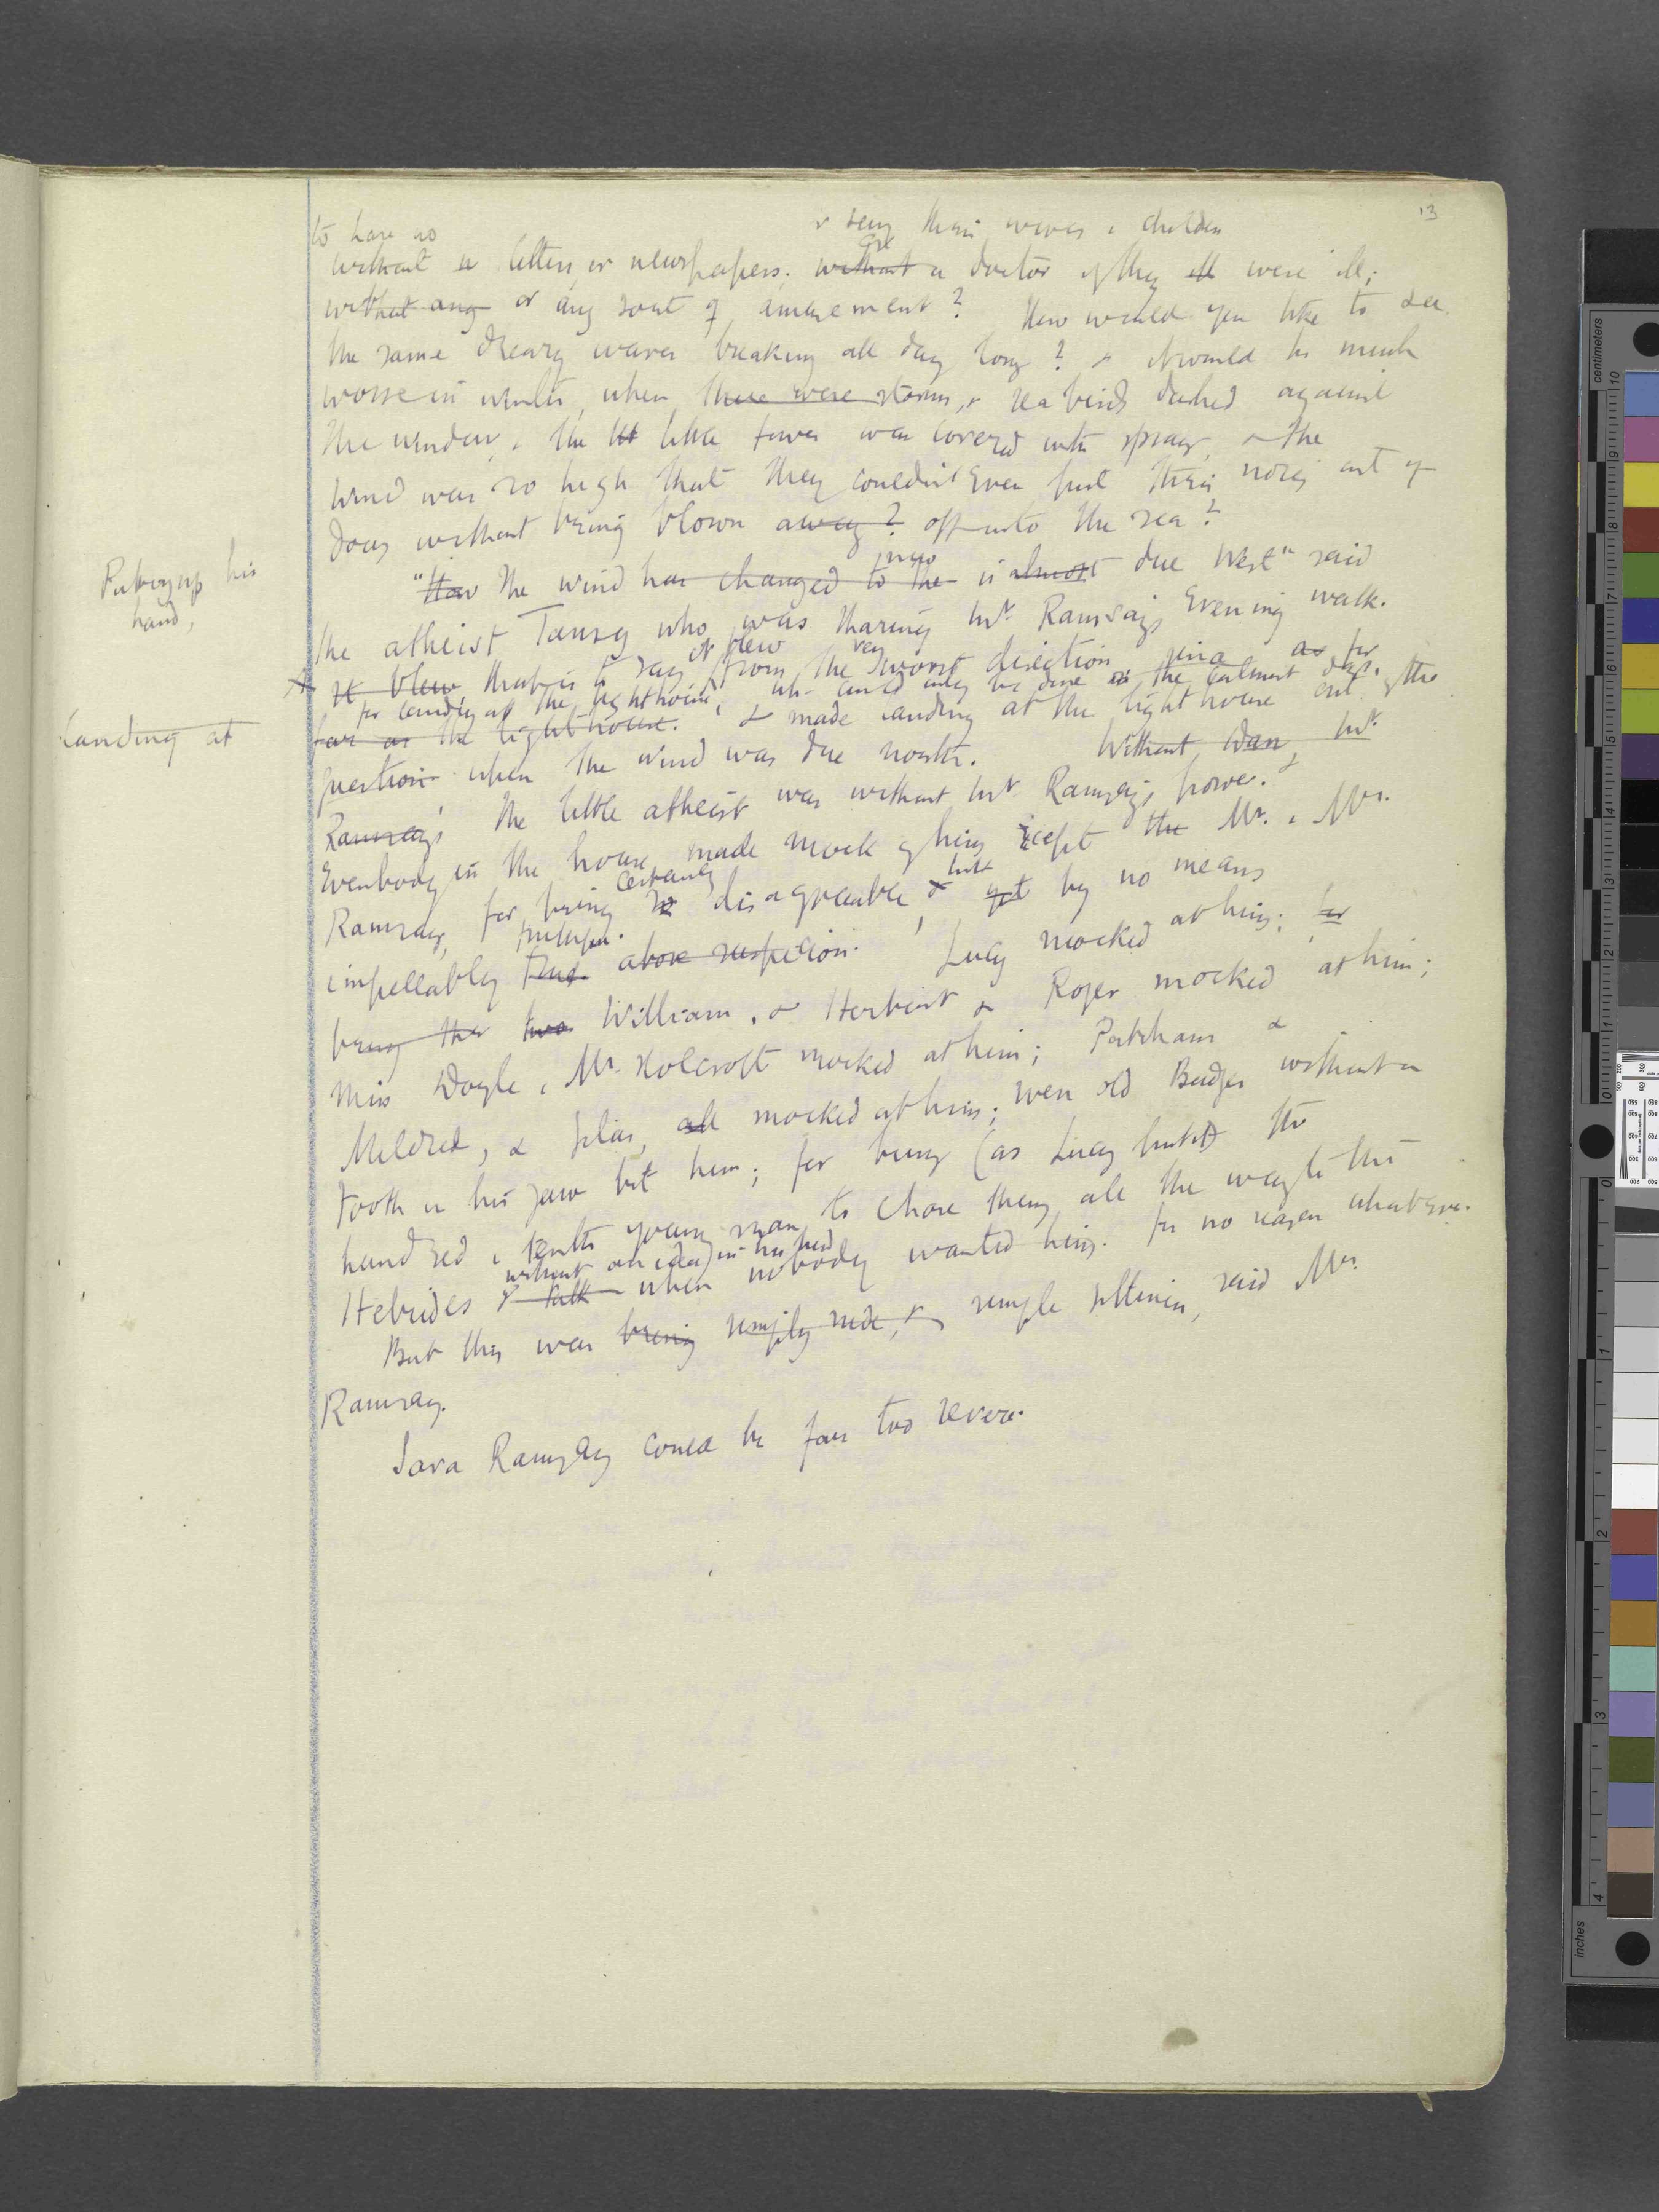 13
to have no & seeing their wives & children
without a letters or newspapers; without a doctor if they ill were ill;
without any or any sort of amusement? How would you like to see
the same dreary waves breaking all day long? & it would be much
worse in winter, when there were storms, & sea birds dashed against
the window, & the lit little tower was covered with spray, & the
wind was so high that they couldn't even put their noses out of
doors without being blown away? off into the sea?
Putting up his
hand,
now
"How The wind has changed to the is almost due West" said
the atheist Tansy who was sharing Mr Ramsay's evening walk.
it blew very
It blew, that is to say from the worst direction, for
for landing at the lighthouse, wh. could only be done in the calmest
landing at
far as the lighthouse. & made landing at the lighthouse out of the
question when the wind was due north. Without Mr
Ramsay's The little atheist was without Mr Ramsay's power. &
Everybody in the house made mock of him except the Mr. & Mrs.
certainly but
Ramsay, for being disagreeable & yet by no means
impeccably above suspicion. Lucy mocked at him; for
being the two William, & Herbert & Roger mocked at him;
Miss Doyle & Mr. Holcroft mocked at him; &
Mildred, & all mocked at him; even old Badger without a
tooth in his jaw bit him; for being (as Lucy put it) the
hundred & tenth young man to chase them all the way to the
without an idea in his head
Hebrides & talk when nobody wanted him. for no reason whatever.
But this was being simply rude, & simple silliness, said Mrs.
Ramsay.
Sara Ramsay could be far too severe.